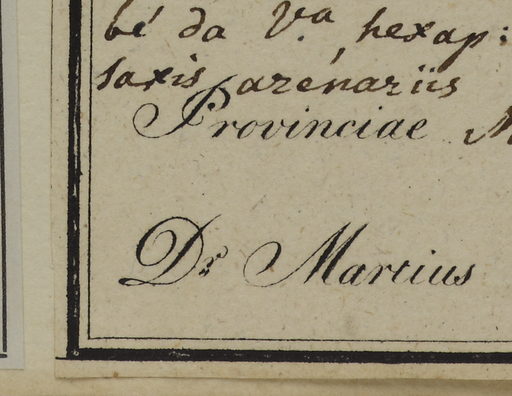 bé da Va hexap:
saxis arénariis
Provinciae M
Dr Martius